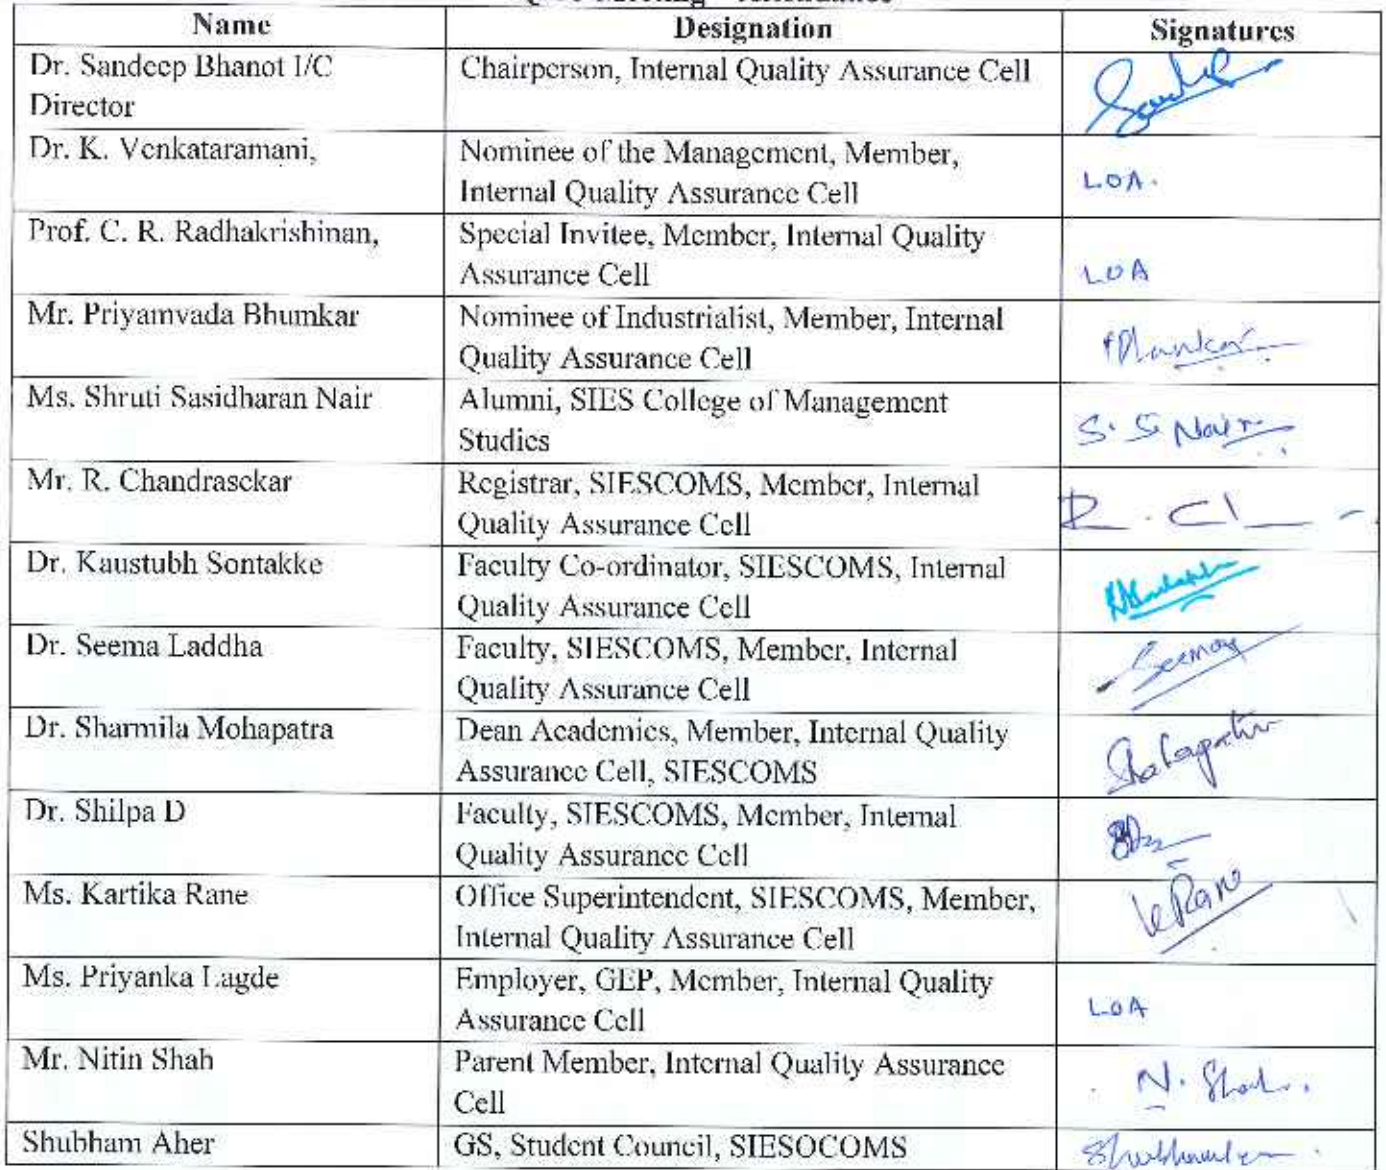 Name Designation Signatures
Dr. Sandeep Bhanot I/C Chairperson, Internal Quality Assurance Cell
Director
Dr. K. Venkataramani, Nominee of the Management, Member,
Internal Quality Assurance Cell L.O.A.
Prof. C. R. Radhakrishinan, Special Invitee, Member, Internal Quality
Assurance Cell LOA
Mr. Priyamvada Bhumkar Nominee of Industrialist, Member, Internal
Quality Assurance Cell
Ms. Shruti Sasidharan Nair Alumni, SIES College of Management
Studies S. S. Nair
Mr. R. Chandrasekar Registrar, SIESCOMS, Member, Internal
Quality Assurance Cell
Dr. Kaustubh Sontakke Faculty Co-ordinator, SIESCOMS, Internal
Quality Assurance Cell
Dr. Seema Laddha Faculty, SIESCOMS, Member, Internal
Quality Assurance Cell Seema
Dr. Sharmila Mohapatra Dean Academics, Member, Internal Quality
Assurance Cell, SIESCOMS
Dr. Shilpa D Faculty, SIESCOMS, Member, Internal
Quality Assurance Cell
Ms. Kartika Rane Office Superintendent, SIESCOMS, Member, KRane
Internal Quality Assurance Cell
Ms. Priyanka Lagde Employer, GEP, Member, Internal Quality
Assurance Cell LOA
Mr. Nitin Shah Parent Member, Internal Quality Assurance
Cell N. Shah.
Shubham Aher GS, Student Council, SIESOCOMS